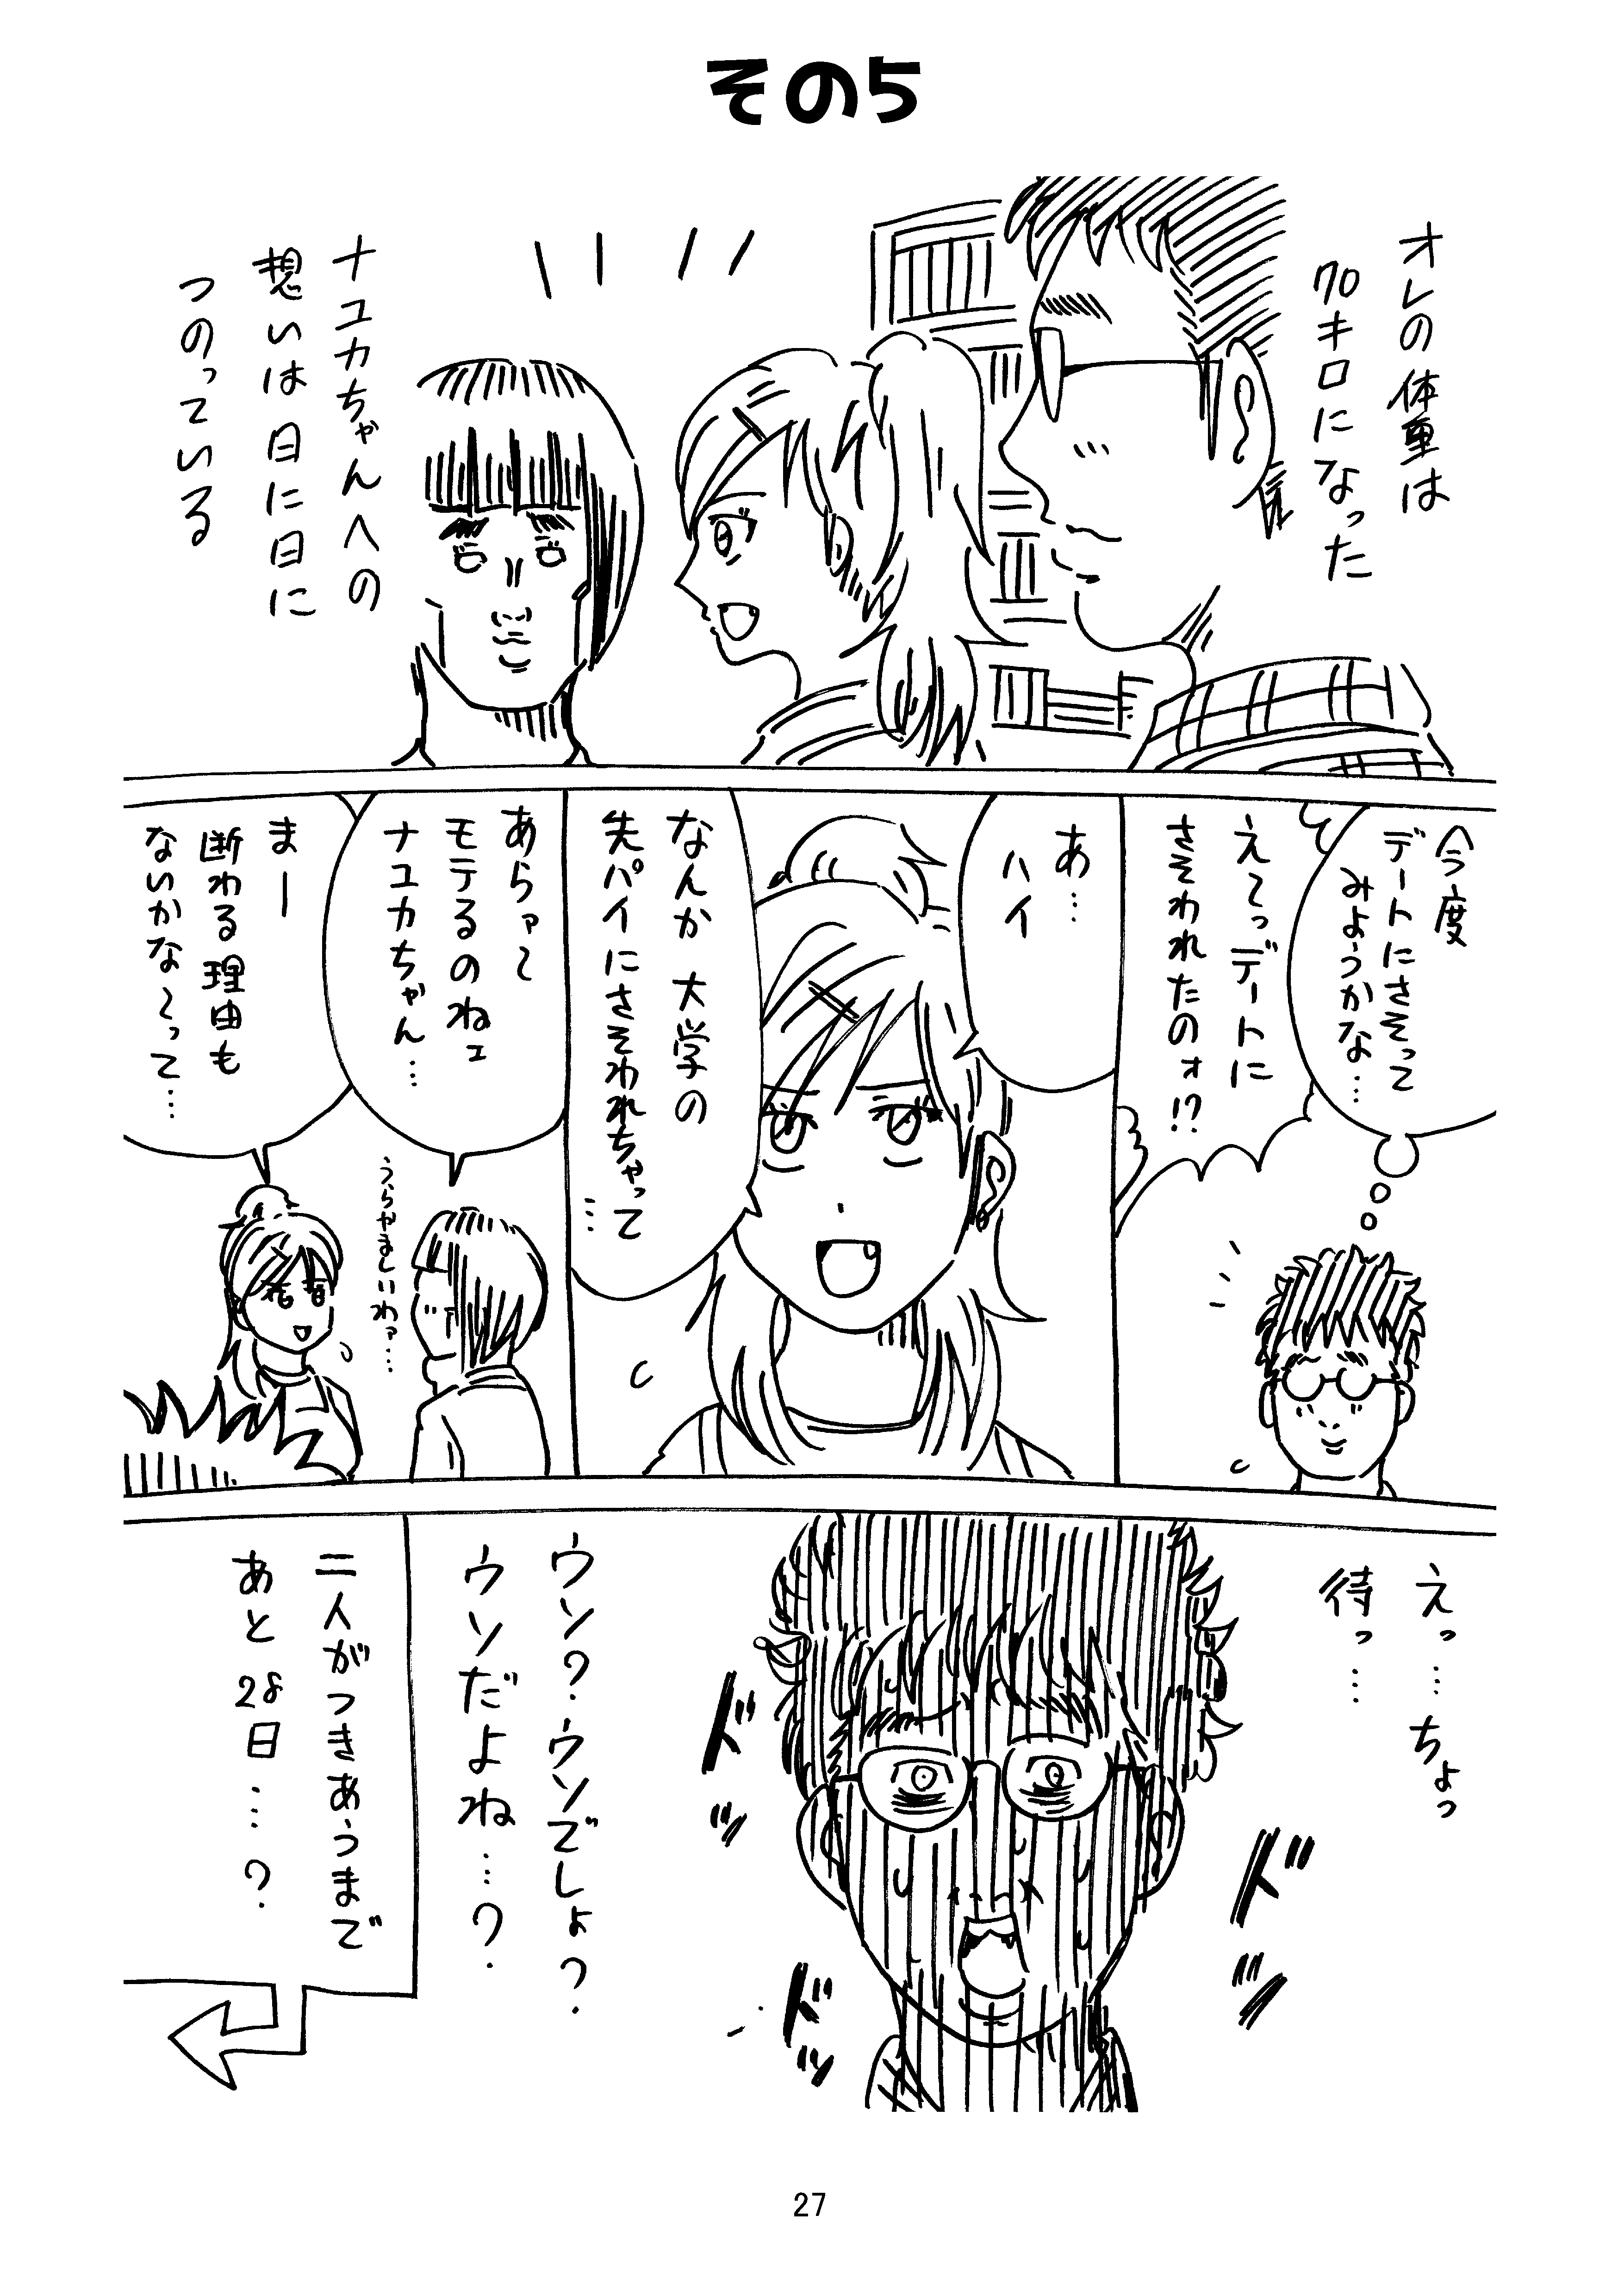 その5
オレの体重は
70キロになった
ナユカちゃんへの
想いは日に日に
つのっている
今度
デートにさそって
みようかな…
えぇっデートに
さそわれたのォ!?
あ…
ハイ
なんか 大学の
先パイにさそわれちゃって
…
あらァ〜
モテるのねェ
ナユカちゃん…
うらやましいわァ…
まー
断わる理由も
ないかな〜って…
えっ…ちょっ
待っ…
ドッ
ドッ
ドッ
ウソ?ウソでしょ?
ウソだよね…?
二人がつきあうまで
あと28日…?
27